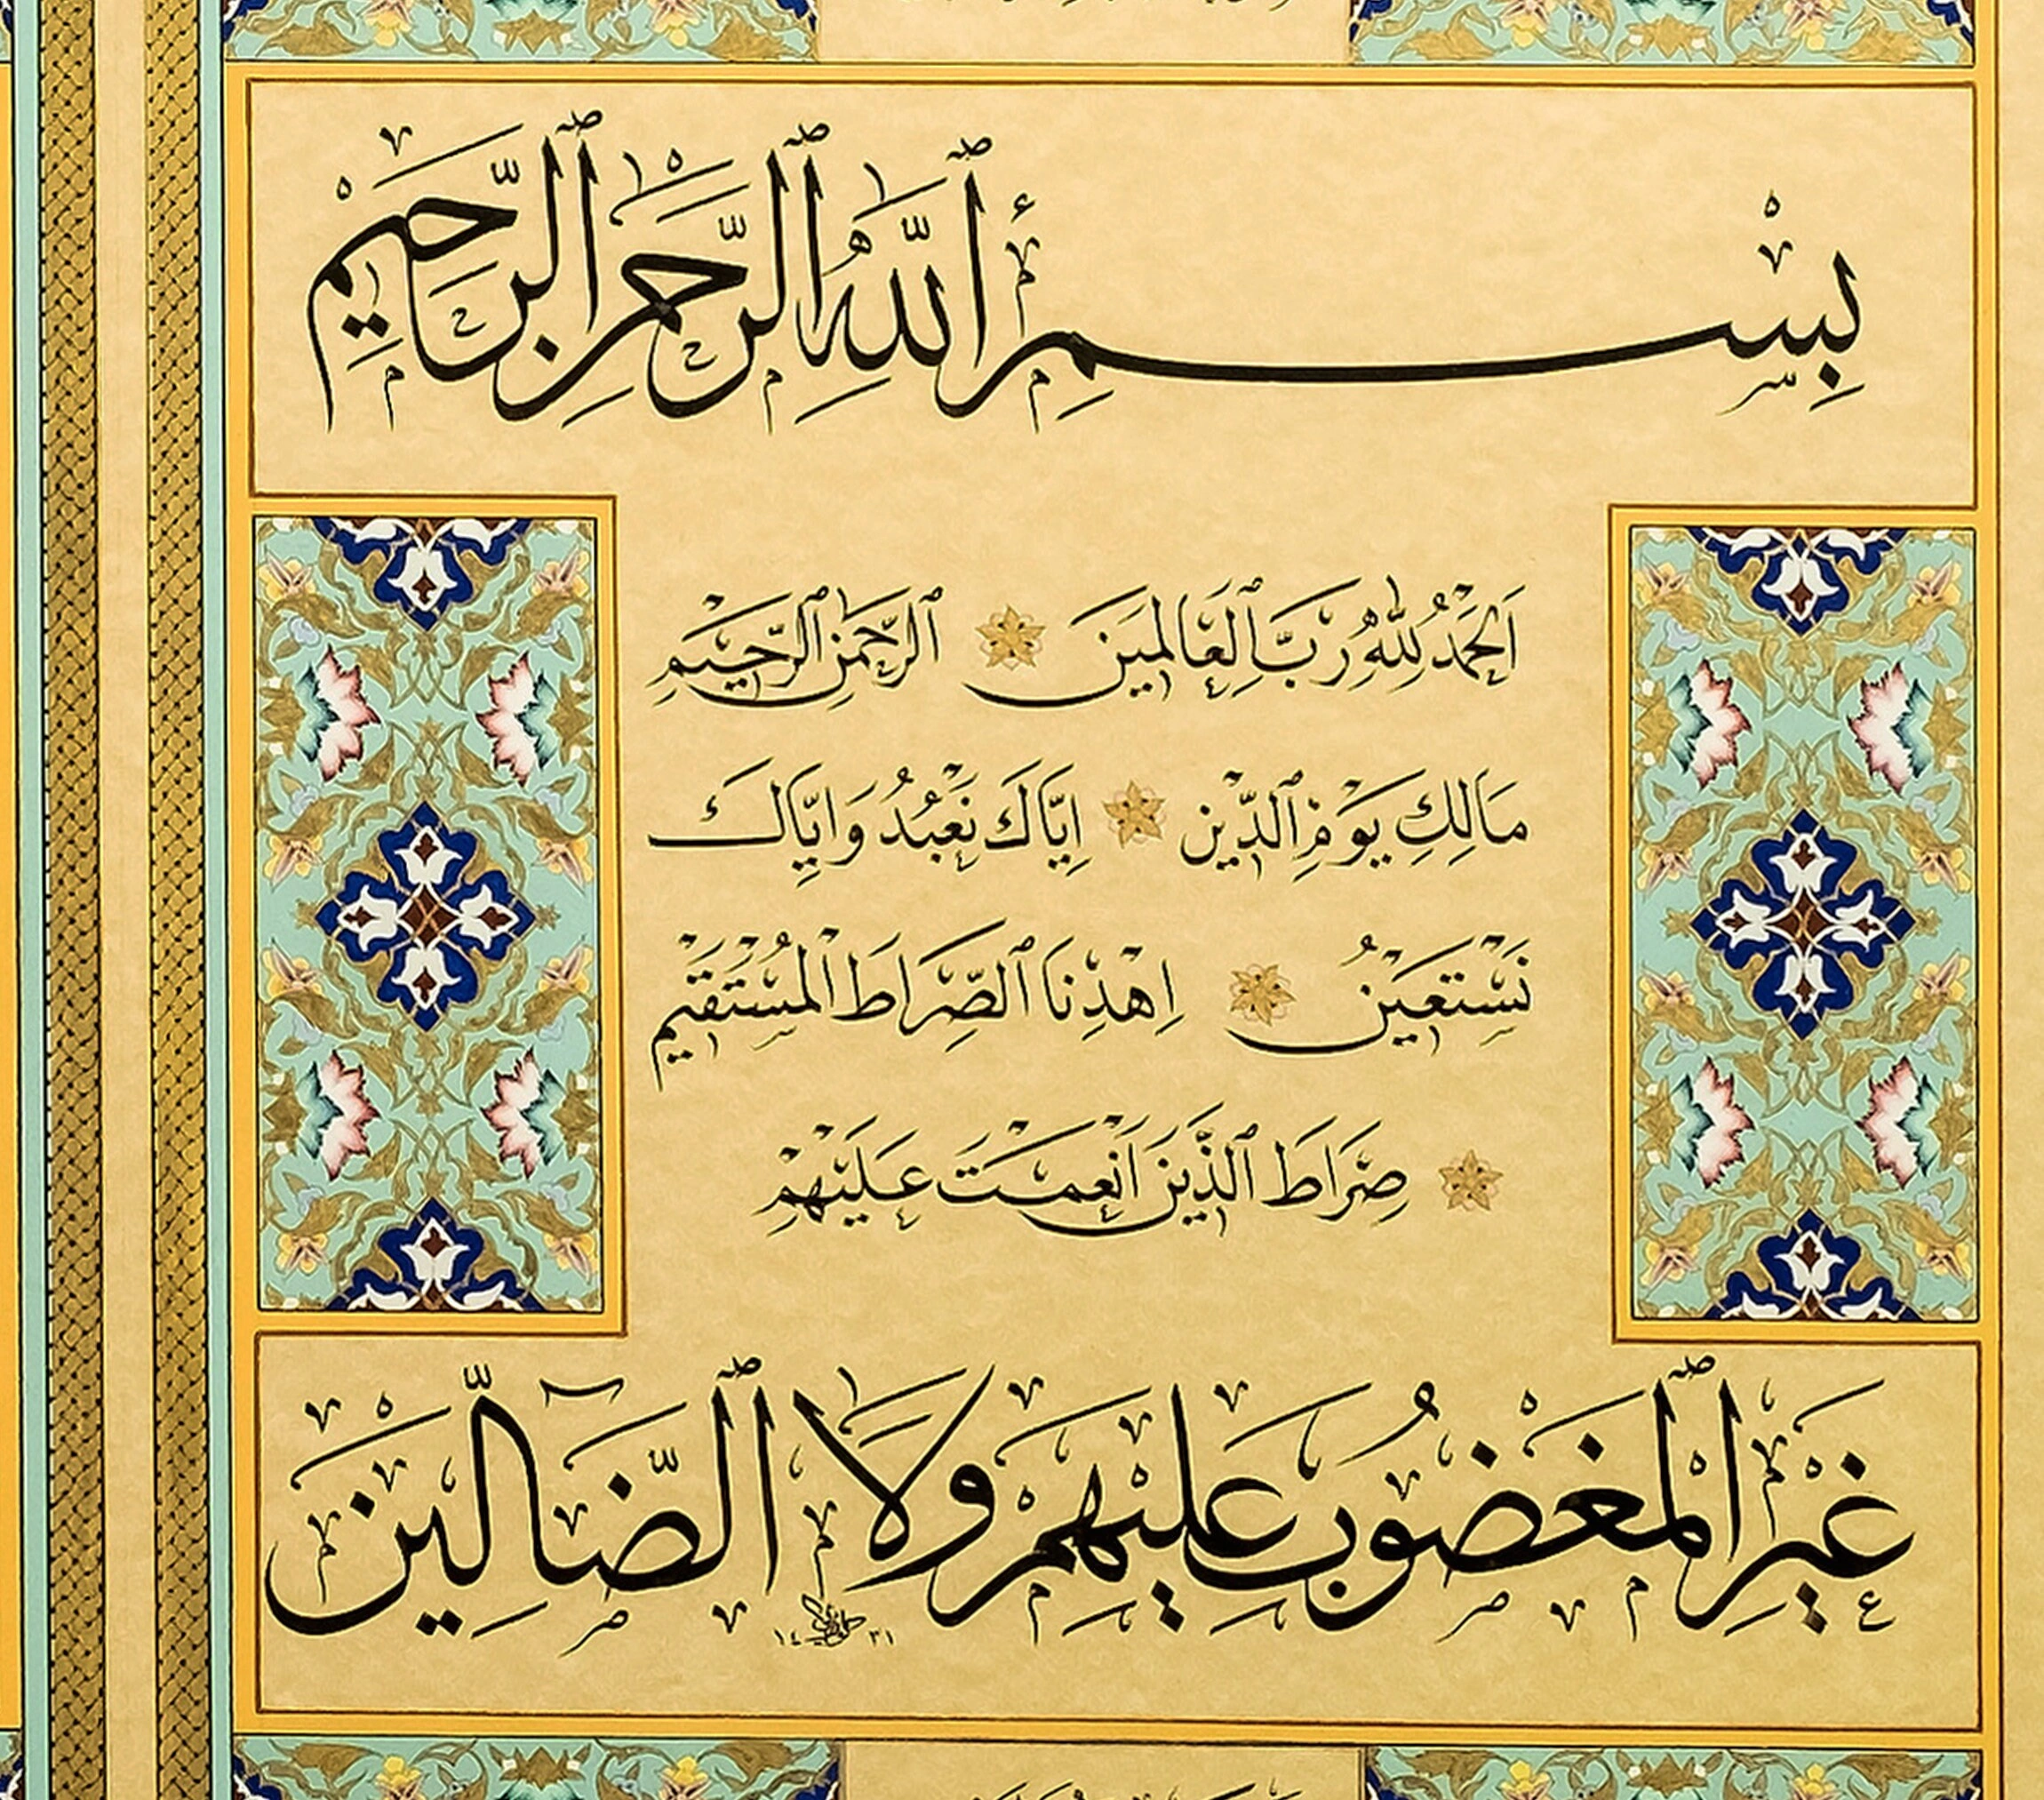 بِسْمِ ٱللّٰهِ ٱلرَّحْمٰنِ ٱلرَّحِيْمِ
اَلْحَمْدُ لِلّٰهِ رَبِّ ٱلْعَالَمِيْنَ ٱلرَّحْمٰنِ ٱلرَّحِيْمِ
مَالِكِ يَوْمِ ٱلدِّيْنِ اِيَّاكَ نَعْبُدُ وَاِيَّاكَ
نَسْتَعِيْنُ اِهْدِنَا ٱلصِّرَاطَ ٱلْمُسْتَقِيْمَ
صِرَاطَ ٱلَّذِيْنَ اَنْعَمْتَ عَلَيْهِمْ
غَيْرِ ٱلْمَغْضُوْبِ عَلَيْهِمْ وَلَا ٱلضَّآلِّيْنَ
١٤٣١